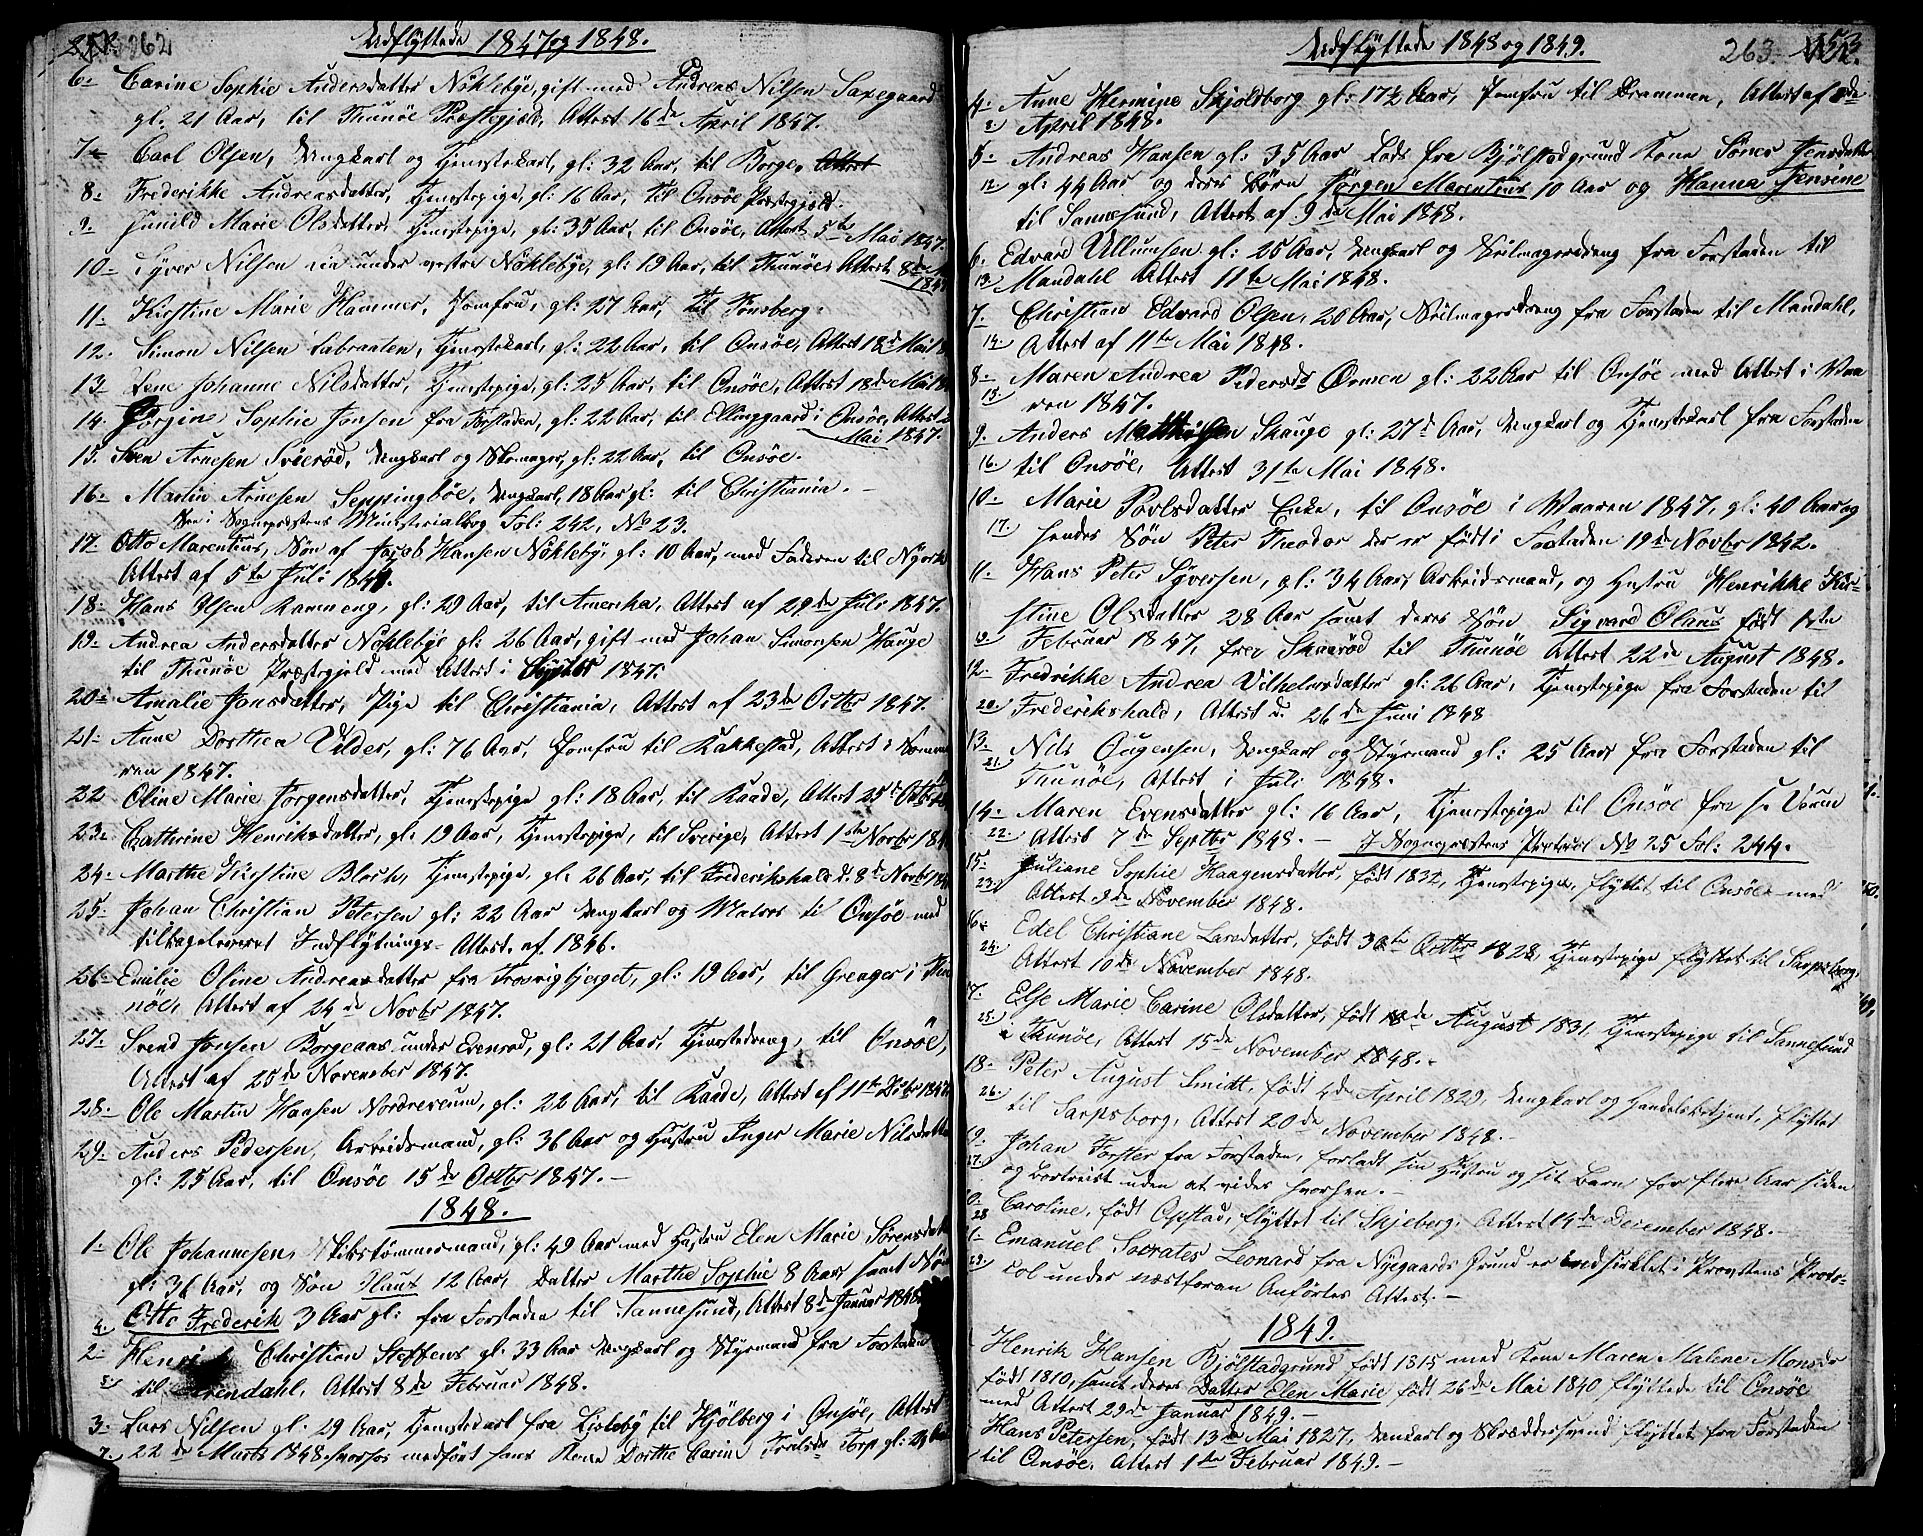 262
Udflyttede 1847 og 1848.
6. Carine Sophie Andersdatter Nöklebye, gift med Andreas Nilsen Saxegaard
gl. 21 Aar, til Thunöe Præstegjeld, Attest 16de April 1847.
7. Carl Olsen, Ungkarl og Tjenestekarl, gl: 32 Aar, til Borge,
8. Frederikke Andreasdatter, Tjenestepige, gl: 16 Aar, til Onsöe Præstegjeld.
9. Gunild Marie Olsdatter, Tjenestepige, gl: 35 Aar, til Onsöe, Attest 5te Mai 1847.
10. Syver Nilsen Lie under vestre Nöklebye, gl: 19 Aar, til Thunöe, Attest 8de
1847
11. Kirstine Marie Hammer, Jomfru, gl: 27 Aar, til Tönsberg.
12. Simon Nilsen Labraaten, Tjenestekarl, gl: 22 Aar, til Onsöe, Attest 18de Mai 18
13. Lene Johanne Nilsdatter, Tjenestepige, gl: 25 Aar, til Onsöe, Attest 18de Mai
14. Jörgine Sophie Jonsen fra Forstaden, gl: 22 Aar, til Ellinggaard i Onsöe, Attest
Mai 1847.
15. Sven Arnesen Svierød, Ungkarl og Skomager, gl: 22 Aar, til Onsöe.
16. Martin Arnesen Seppingböe, Ungkarl, 18 Aar gl: til Christiania. -
See i Sognepræstens Ministerialbog Fol: 242, No 23.
17. Otto Marentius, Sön af Jacob Hansen Nökleby, gl: 10 Aar, med Faderen til Nÿork
Attest af 5te Juli 1847.
18. Hans Olsen Kamneng, gl: 29 Aar, til Amerika, Attest af 29de Juli 1847.
19. Andrea Andersdatter Nöklebye gl: 26 Aar, gift med Johan Simonsen Hauge
til Thunöe Præstegjeld med Attest i Septbr 1847.
20. Amalie Jonsdatter, Pige til Christiania, Attest af 23de Octbr 1847.
21. Anne Dorthea Vilder, gl: 76 Aar, Jomfru til Rakkestad, Attest i Somme
ren 1847.
22. Oline Marie Jörgensdatter, Tjenestepige gl: 18 Aar, til Raade, Attest 25de Octbr
23. Cathrine Henriksdatter, gl: 19 Aar, Tjenestepige, til Sverige, Attest 1ste Novbr 184
24. Marthe Kirstine Bloch, Tjenestepige, gl: 26 Aar, til Frederikshald d. 8de Novbr 184
25. Johan Christian Petersen gl: 22 Aar Ungkarl og Matros til Onsöe med
tilbageleveret Indflytnings-Attest af 1846.
26. Emilie Oline Andreasdatter fra Trosvigbjerget, gl: 19 Aar, til Greager i Thu
nöe, Attest af 24de Novbr 1847.
27. Svend Jonsen Borgeaas under Evenrød, gl: 21 Aar, Tjenestedreng, til Onsöe,
Attest af 25de November 1847.
28. Ole Martin Hansen Nordreveum, gl: 22 Aar, til Raade, Attest af 11te Decbr 1847
29. Anders Pedersen, Arbeidsmand, gl: 36 Aar og Hustru Inger Marie Nilsdatter
gl: 25 Aar, til Onsöe 15de Octbr 1847. -
1848.
1. Ole Johannesen, Skibstömmermand, gl: 49 Aar med Hustru Elen Marie Sörensdat
gl: 36 Aar, og Sön Olaus 12 Aar, Datter Marthe Sophie 8 Aar samt Sön
4. Otto Frederik 3 Aar gl: fra Forstaden til Sannesund, Attest 8de Januar 1848
2. Henrik Christian Steffens gl: 33 Aar Ungkarl og Styrmand fra Forstaden
til Arendahl, Attest 8de Februar 1848.
3. Lars Nilsen gl: 29 Aar, Tjenestekarl fra Lisleby til Kjölberg i Onsöe, Attest
7. 22de Marts 1848, hvorhos medfört hans Kone Dorthe Carine Torp gl: 29
Udflyttede 1848 og 1849.
263. 253
4. Anne Hermine Skjoldborg gl: 17½ Aar, Jomfru til Drammen, Attest af
April 1848.
5. Andreas Hansen gl: 35 Aar Lods fra Bjölstadgrund Kone Sönev Jensdatter
12. gl: 44 Aar og deres Börn Jörgen Marentius 10 Aar og Hanna Jensine
til Sannesund, Attest af 9de Mai 1848.
6. Edvard Ullumsen gl: 25 Aar, Ungkarl og Seilmagerdreng fra Forstaden til
13. Mandahl Attest 11te Mai 1848.
7. Christian Edvard Olsen, 20 Aar, Seilmagerdreng fra Forstaden til Mandahl,
14. Attest af 11te Mai 1848.
8. Maren Andrea Pedersdr Oxnen gl: 22 Aar til Onsöe med Attest i Vaa
15. ren 1847.
9. Anders Matthisen Skauge gl: 27de Aar, Ungkarl og Tjenestekarl fra Forstaden
16. til Onsöe, Attest 31te Mai 1848.
10. Marie Povlsdatter Enke, til Onsöe i Vaaren 1847, gl: 40 Aar og
17. hendes Sön Peter Theodor der er födt i Forstaden 19de Novbr 1842.
11. Hans Peter Syversen, gl: 34 Aar, Arbeidsmand, og Hustru Henrikke Kir-
stine Olsdatter 28 Aar samt deres Sön Sigvard Olaus födt 1ste
19. Februar 1847, fra Skaarød til Thunöe Attest 22de August 1848.
12. Fredrikke Andrea Vilhelmsdatter gl: 26 Aar, Tjenestepige fra Forstaden til
20. Frederikshald, Attest d. 26de Juni 1848
13. Nils Ougensen, Ungkarl og Styrmand gl: 25 Aar fra Forstaden til
21. Thunöe, Attest i Juli 1848.
14. Maren Evensdatter gl: 16 Aar, Tjenestepige til Onsöe fra
22. Attest 7de Septbr 1848. - I Sognepræstens Protocol No 25 Fol: 244.
15. Juliane Sophie Haagensdatter, födt 1832, Tjenestepige, flyttet til Onsöe med
23. Attest 9de November 1848.
16. Edel Christiane Larsdatter, födt 30te Octbr 1828, Tjenestepige flyttet til Sarpsborg,
24. Attest 10de November 1848.
17. Else Marie Carine Olsdatter, födt 18de August 1831, Tjenestepige til Sannesund
25. i Thunöe, Attest 15de November 1848. -
18. Peter August Smidt, födt 4de April 1829, Ungkarl og Handelsbetjent, flyttet
26. til Sarpsborg, Attest 20de November 1848. -
19. Johan Torster fra Forstaden, forladt sin Hustru og sit Barn for flere Aar siden
27. og bortreist uden at vides hvorhen. -
20. Caroline, födt Opstad, flyttet til Skjeberg, Attest 14de December 1848. -
28
21. Emanuel Socrates Leonard fra Nÿegaards Grund er indfirklet i Provstens Proto-
29. col under næstforan Anförtes Attest. -
1849.
Henrik Hansen Bjölstadgrund födt 1815 med Kone Maren Malene Monsdr
födt 1810, samt deres Datter Elen Marie födt 26de Mai 1840 flyttede til Onsöe
med Attest 29de Januar 1849. -
Hans Petersen, födt 13de Mai 1827, Ungkarl og Skræddersvend flyttet fra Forstaden
til Onsöe, Attest 1ste Februar 1849. -